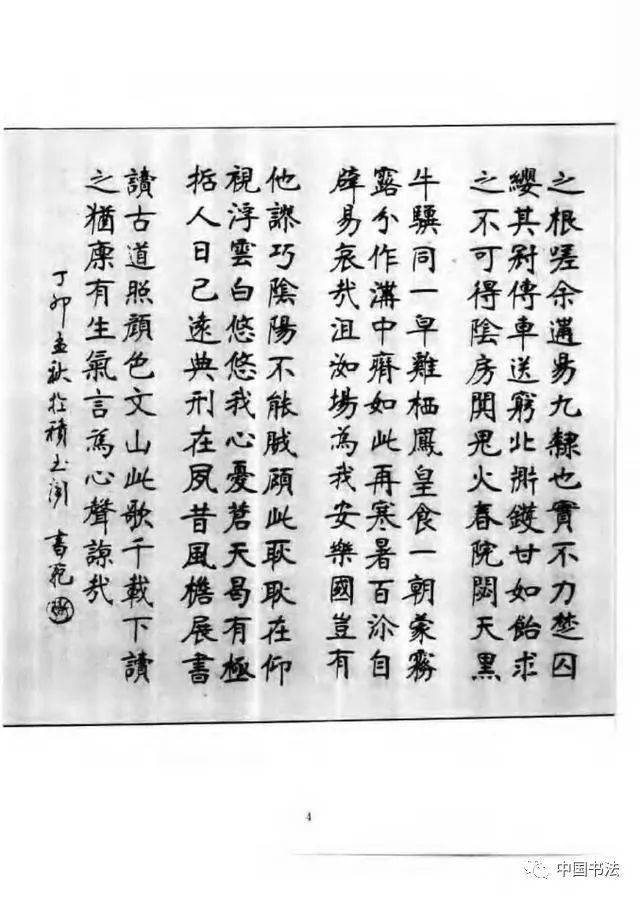 之根嗟余遘易九隸也實不力楚囚
纓其冠傳車送窮北鼎鑊甘如飴求
之不可得陰房闃鬼火春院閟天黑
牛驥同一皁雞栖鳳皇食一朝蒙霧
露分作溝中瘠如此再寒暑百沴自
辟易哀哉沮洳場為我安樂國豈有
他謬巧陰陽不能賊顧此耿耿在仰
視浮雲白悠悠我心憂蒼天曷有極
哲人日已遠典刑在夙昔風檐展書
讀古道照顏色文山此歌千載下讀
之猶凜有生氣言為心聲諒哉
丁卯孟秋於積玉閣 書
4
中国书法